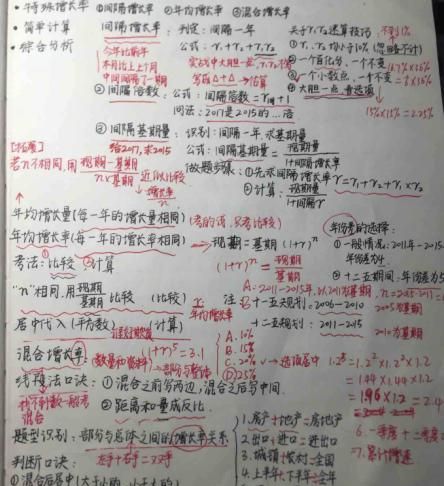 • 特殊增长率 ①间隔增长率 ②年均增长率 ③混合增长率
• 简单计算 间隔增长率: 判定: 间隔一年
• 综合分析 公式: r₁+r₂+r₁×r₂
今年比前年
本月比上上月
中间间隔了一期
关于r₁r₂速算技巧:
① r₁、r₂均小于10%
② 一个百化分,一个不变
③ 一个小数点,一个不变
④ 大胆一点,看选项
15%×15%=2.25%
②间隔倍数: 公式: 间隔倍数=r间+1
问法: 2017是2015的…倍
③间隔基期量: 识别: 间隔一年,求基期量
给2017,求2015 公式: 间隔基期量=现期量/1+间隔增长率
[拓展]
若n不相同,用 现期-基期/n×基期 近似比较
做题步骤: ①先求间隔增长率r=r₁+r₂+r₁×r₂
②计算: 现期量/1+间隔r
年均增长量(每一年的增长量相同)
年均增长率(每一年的增长率相同) → 现期=基期(1+r)ⁿ
考法: ①比较 ②计算 (1+r)ⁿ=现期量/基期量
年份差的选择:
① 一般情况: 2011年-2015
② 十二五期间: 年份差为5
"n"相同,用 现期量/基期量 比较 (比较)
年均增长率
注: 十一五规划: 2006-2010
2005为基期
十二五规划: 2011-2015
2010为基期
居中代入(平方数) (计算)
混合增长率 (1+r)⁵=3.1
A.10%
B.15%
C.20% → 选项居中
D.25%
1.2⁵=1.2²×1.2²×1.2
=1.44×1.44×1.2
=1.96×1.2=2.4
(数量和资料) → 部分与整体
线段法口诀: ①混合之前写两边,混合之后写中间.
②距离和量成反比.
题型识别: 部分与总体之间的增长率关系
判断口诀:
1.房产+地产=房地产
2.出口+进口=进出口
3.城镇+农村=全国
4.上半年+下半年=全年
6.一季度+二季度=
7.累计增速